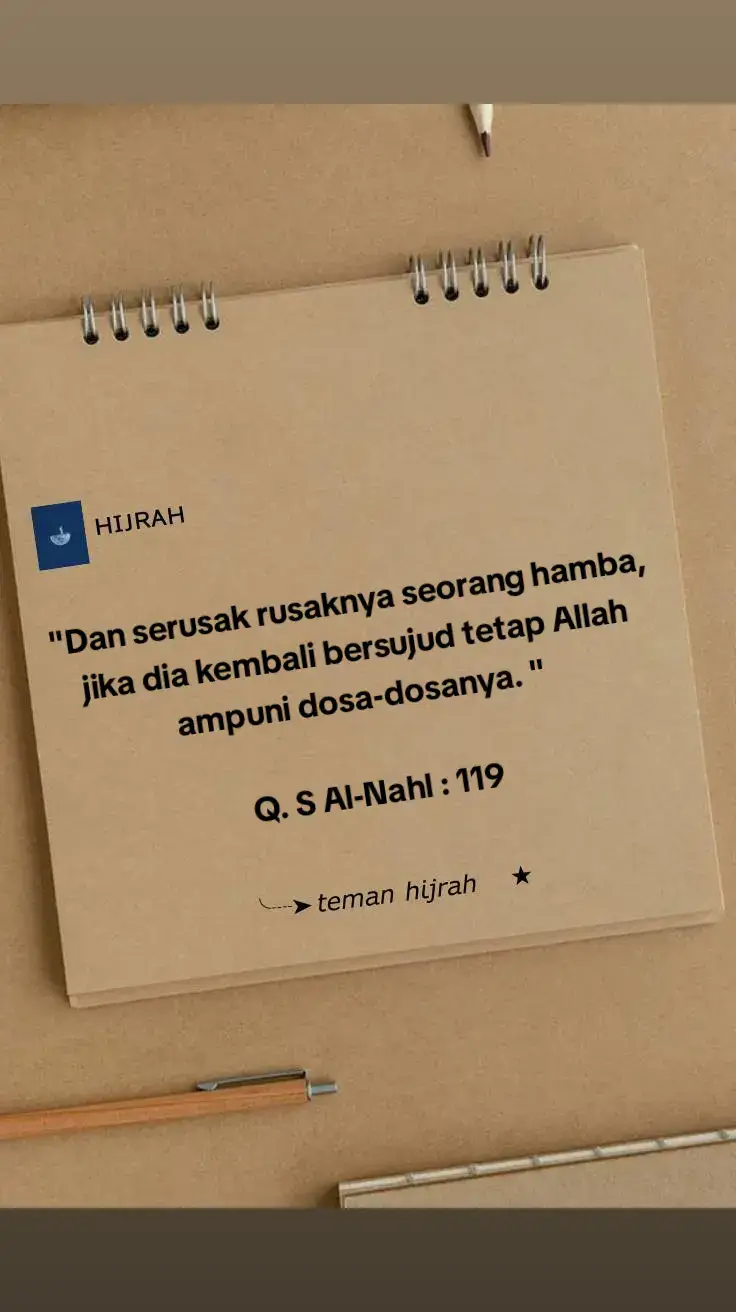 HIJRAH
"Dan serusak rusaknya seorang hamba,
jika dia kembali bersujud tetap Allah
ampuni dosa-dosanya. "
Q. S Al-Nahl : 119
teman hijrah